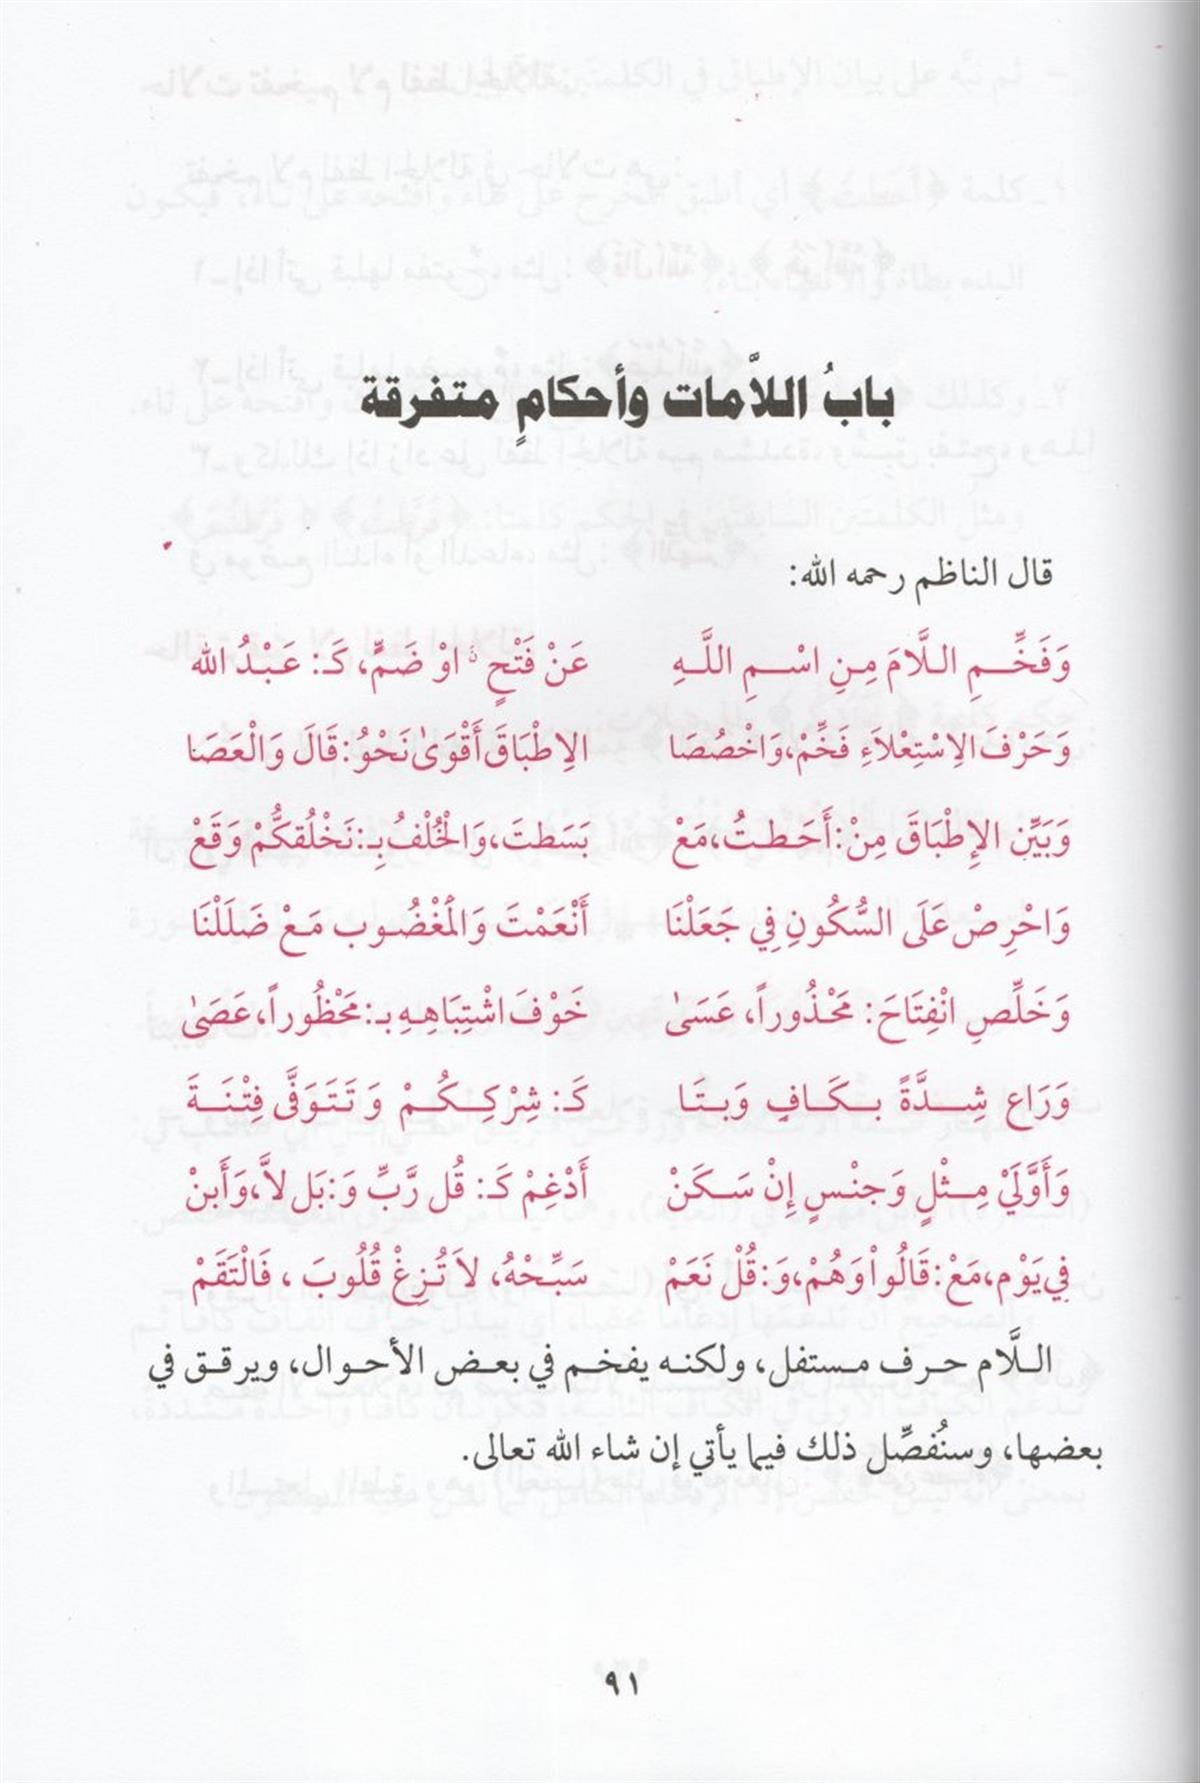 بابُ اللاَّمات وأحكامٍ متفرقة
قال الناظم رحمه الله:
وَفَخِّـمِ الـلَّامَ مِنِ اسْـمِ اللَّـهِ عَنْ فَتْحٍ اوْ ضَمٍّ، كَـ: عَبْدُ الله
وَحَرْفَ الِاسْتِعْلَاءِ فَخِّمْ، وَاخْصُصَا الِاطْبَاقَ أَقْوَىٰ نَحْوُ: قَالَ وَالْعَصَا
وَبَيِّنِ الإِطْبَاقَ مِنْ: أَحَطـتُ، مَعْ بَسَطتَ، وَالْخُلْفُ بِـ: نَخْلُقكُّمْ وَقَعْ
وَاحْرِصْ عَلَى السُّكُونِ فِي جَعَلْنَا أَنْعَمْتَ وَالْمَغْضُـوبِ مَـعْ ضَلَلْنَا
وَخَلِّصِ انْفِتَاحَ: مَحْـذُوراً، عَسَىٰ خَوْفَ اشْتِبَاهِـهِ بـ: مَحْظُوراً، عَصَىٰ
وَرَاعِ شِـدَّةً بـكَـافٍ وَبـتَـا كَـ: شِرْكِـكُـمْ وَتَتَوَفَّى فِتْنَـةَ
وَأَوَّلَيْ مِـثْلٍ وَجِنْسٍ إِنْ سَـكَنْ أَدْغِمْ كَـ: قُل رَّبِّ وَ: بَل لاَّ، وَأَبِنْ
فِي يَوْمِ، مَعْ: قَالُواْ وَهُمْ، وَ: قُلْ نَعَمْ سَبِّحْهُ، لاَ تُـزِغْ قُلُوبَ، فَالْتَقَمْ
الـلَّام حـرف مـستفل، ولكنـه يفخـم في بعـض الأحـوال، ويرقـق في
بعضها، وسنُفصِّل ذلك فيما يأتي إن شاء الله تعالى.
٩١